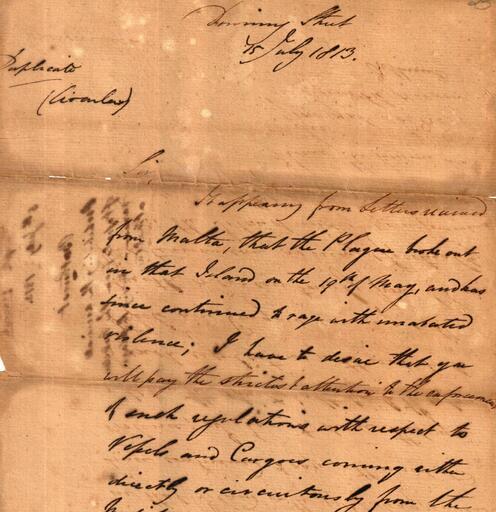 Downing Street
15 July 1813.
Duplicate
(Circular)
Sir,
It appearing from Letters received
from Malta, that the Plague broke out
in that Island on the 19th of May, and has
since continued to rage with unabated
violence; I have to desire that you
will pay the strictest attention to the enforcement
of such regulations with respect to
Vessels and Cargoes coming either
directly or circuitously from the